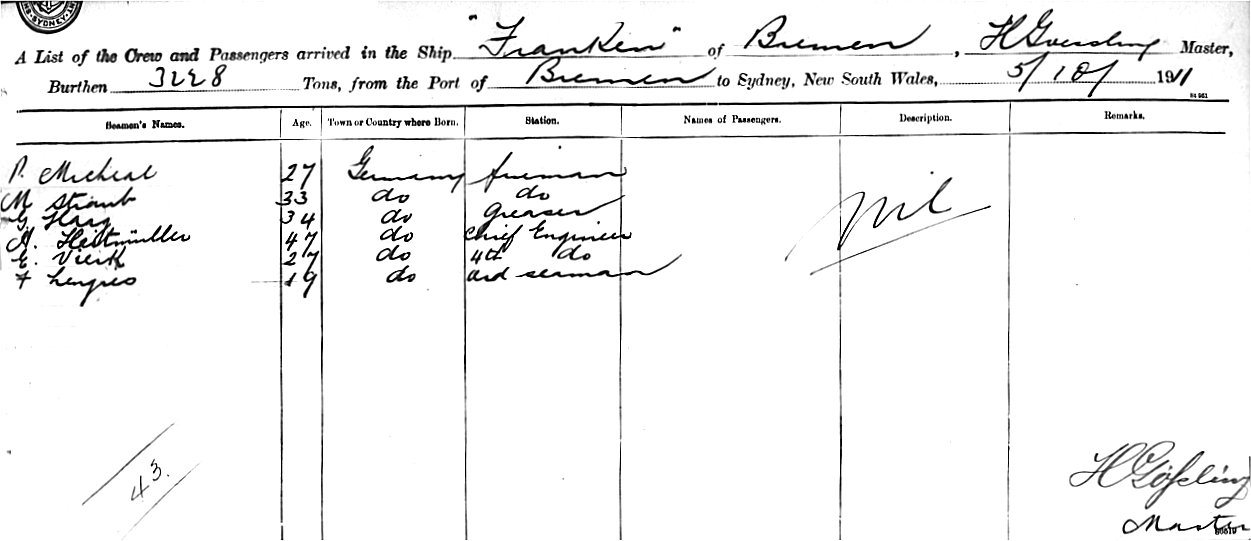 SYDNEY
A List of the Crew and Passengers arrived in the Ship "Franken" of Bremen, H Goessling Master,
Burthen 3228 Tons, from the Port of Bremen to Sydney, New South Wales, 5/10/ 1911
Seamen's Names. Age. Town or Country where Born. Station. Names of Passengers. Description. Remarks.
P. Micheal 27 Germany fireman
M Straub 33 do do
G. Haag 34 do Greaser
A. Heitmüller 47 do Chief Engineer
E. Vierk 27 do 4th do
F 19 do ord seaman
nil
43.
H Gößling
Master